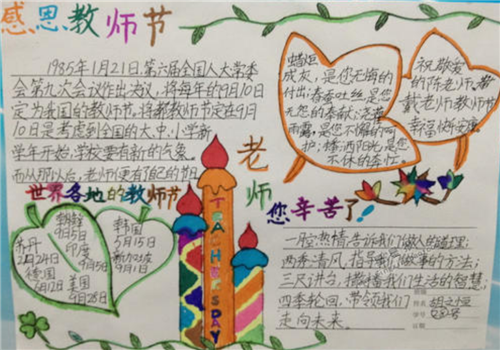 感恩教师节
1985年1月21日,第六届全国人大常委
会第九次会议作出决议,将每年的9月10日
定为我国的教师节。将教师节定在9月
10日是考虑到全国的大、中、小学新
学年开始,学校要有新的气象。
而从那以后,老师便有了自己的节日
蜡炬
成灰,是您无悔的
付出;春蚕吐丝是您无
怨的奉献;
雨露,是您不倦的呵
护;播洒阳光,是您
不休的
祝敬爱
的陈老师、
戴老师教师节
幸福快乐
世界各地的教师节
朝鲜
9月5日
印度
9月5日
德国
6月12日
美国
9月28日
韩国
5月15日
新加坡
9月1日
TEACHER'S DAY
老师
您辛苦了!
一腔热情,告诉我们做人的道理;
两季清风,指导我们做事的方法;
三尺讲台,播撒我们生活的智慧;
四季轮回,带领我们
走向未来。
姓名
学号
日期